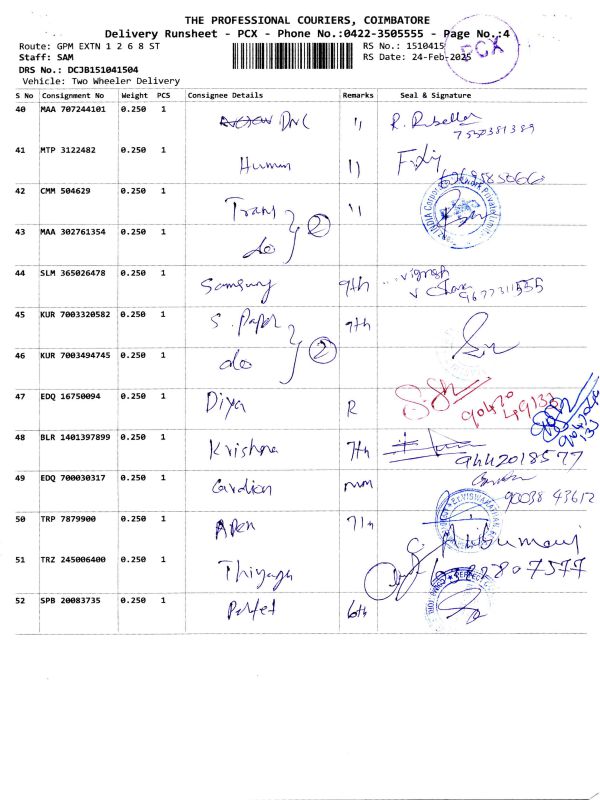 THE PROFESSIONAL COURIERS, COIMBATORE
Delivery Runsheet - PCX - Phone No.:0422-3505555 - Page No.:4
Route: GPM EXTN 1 2 6 8 ST RS No.: 1510415
Staff: SAM RS Date: 24-Feb-2025
PCX
DRS No.: DCJB151041504
Vehicle: Two Wheeler Delivery
S No Consignment No Weight PCS Consignee Details Remarks Seal & Signature
40 MAA 707244101 0.250 1 DNC 11 R. Rubella
7550381389
41 MTP 3122482 0.250 1 Human 11
42 CMM 504629 0.250 1 Trans 11
43 MAA 302761354 0.250 1 do 2
44 SLM 365026478 0.250 1 Samsung 9th Vignesh
9677311555
45 KUR 7003320582 0.250 1 S. Paper 9th
46 KUR 7003494745 0.250 1 do 2
47 EDQ 16750094 0.250 1 Diya R
48 BLR 1401397899 0.250 1 Krishna 7th
9442018577
49 EDQ 700030317 0.250 1 Cardion
90038 43612
50 TRP 7879900 0.250 1 Apen 7th
51 TRZ 245006400 0.250 1 Thiyagu
52 SPB 20083735 0.250 1 Perfet 6th